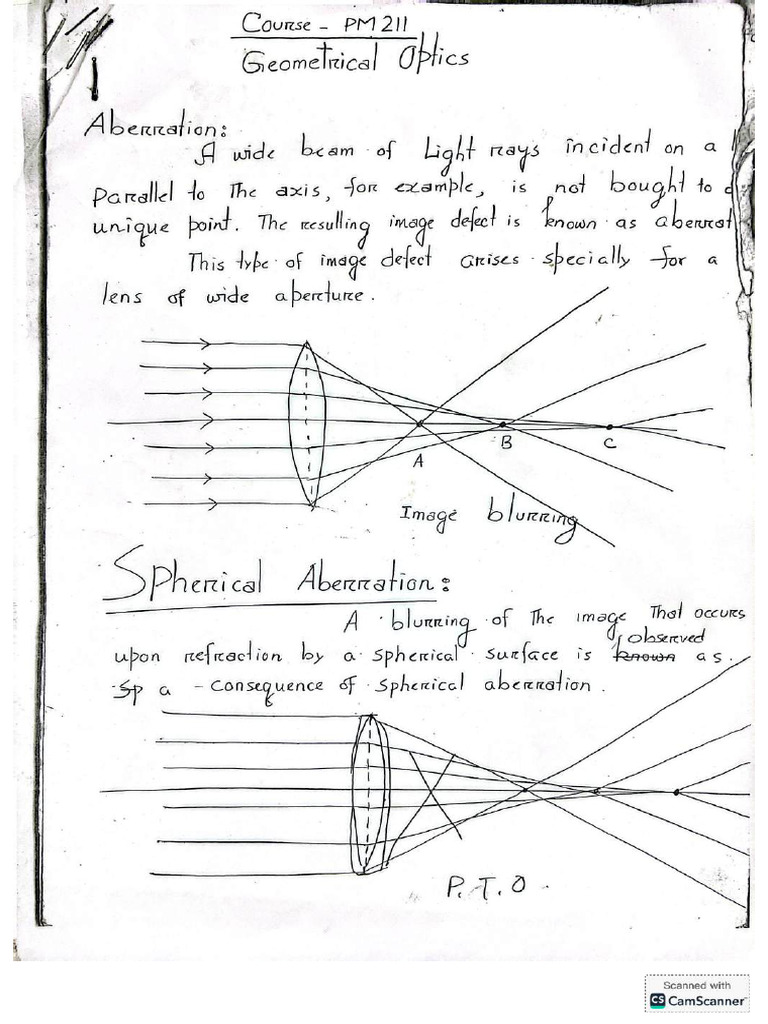 Course - PM 211
Geometrical Optics
1
Aberration:
A wide beam of Light rays incident on a
Parallel to The axis, for example, is not bought to
unique point. The resulting image defect is known as aberrat
This type of image defect arises specially for a
lens of wide aperture.
A
B
C
Image blurring
Spherical Aberration:
A blurring of The image That occurs
observed
upon refraction by a spherical surface is known as.
Sp a - consequence of spherical aberration.
P. T. O.
Scanned with
CS CamScanner